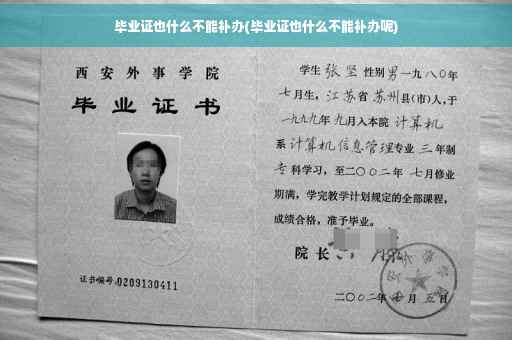 毕业证也什么不能补办(毕业证也什么不能补办呢)
西安外事学院
毕业证书
证书编号:0209130411
学生 张坚 性别 男 一九八〇年
七月生，江苏省苏州县(市)人,于
一九九九年九月入本院 计算机
系 计算机信息管理专业 三 年制
专科学习，至二〇〇二年 七月修业
期满，学完教学计划规定的全部课程，
成绩合格，准予毕业。
院长
二〇〇二年 月 五 日